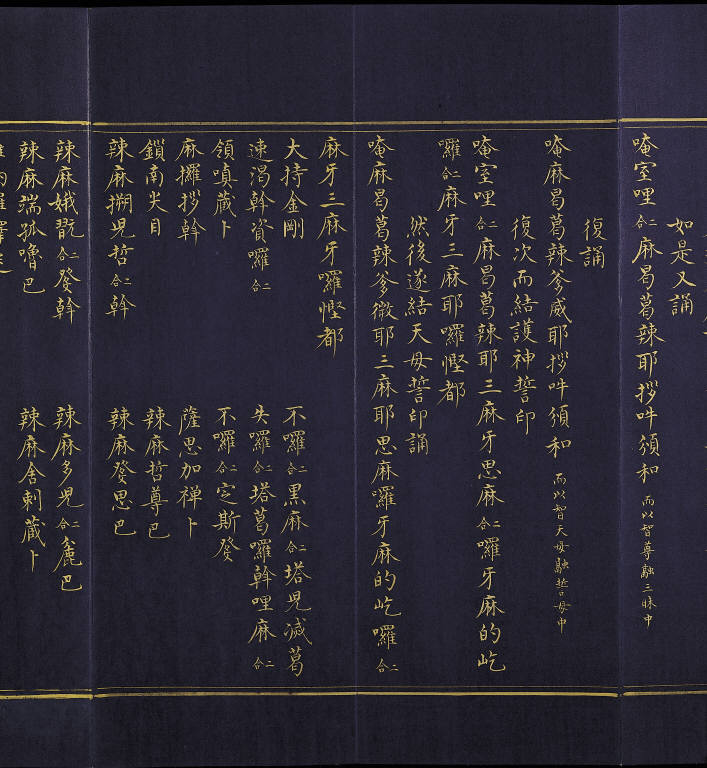 如是又誦
唵室哩二合麻曷葛辣耶拶吽頞和而以智尊融三昧中
復誦
唵麻曷葛辣爹威耶拶吽頞和而以智天母融誓母中
復次而結護神誓印
唵室哩二合麻曷葛辣耶三麻牙思麻二合囉牙麻的屹
囉二合麻牙三麻耶囉慳都
然後遂結天母誓印誦
唵麻曷葛辣爹微耶三麻耶思麻囉牙麻的屹囉二合
麻牙三麻牙囉慳都
大持金剛 不囉二合黑麻二合塔兒減葛
速渴幹資囉二合 失囉二合塔葛囉幹哩麻二合
領嗔蔵卜 不囉二合定斯發
麻攞拶幹 薩思加禅卜
鎖南尖目 辣麻哲尊巴
辣麻搠兒哲二合幹 辣麻發思巴
辣麻娥翫二合發幹 辣麻多兒二合麁巴
辣麻端孤嚕巴 辣麻舍剌蔵卜